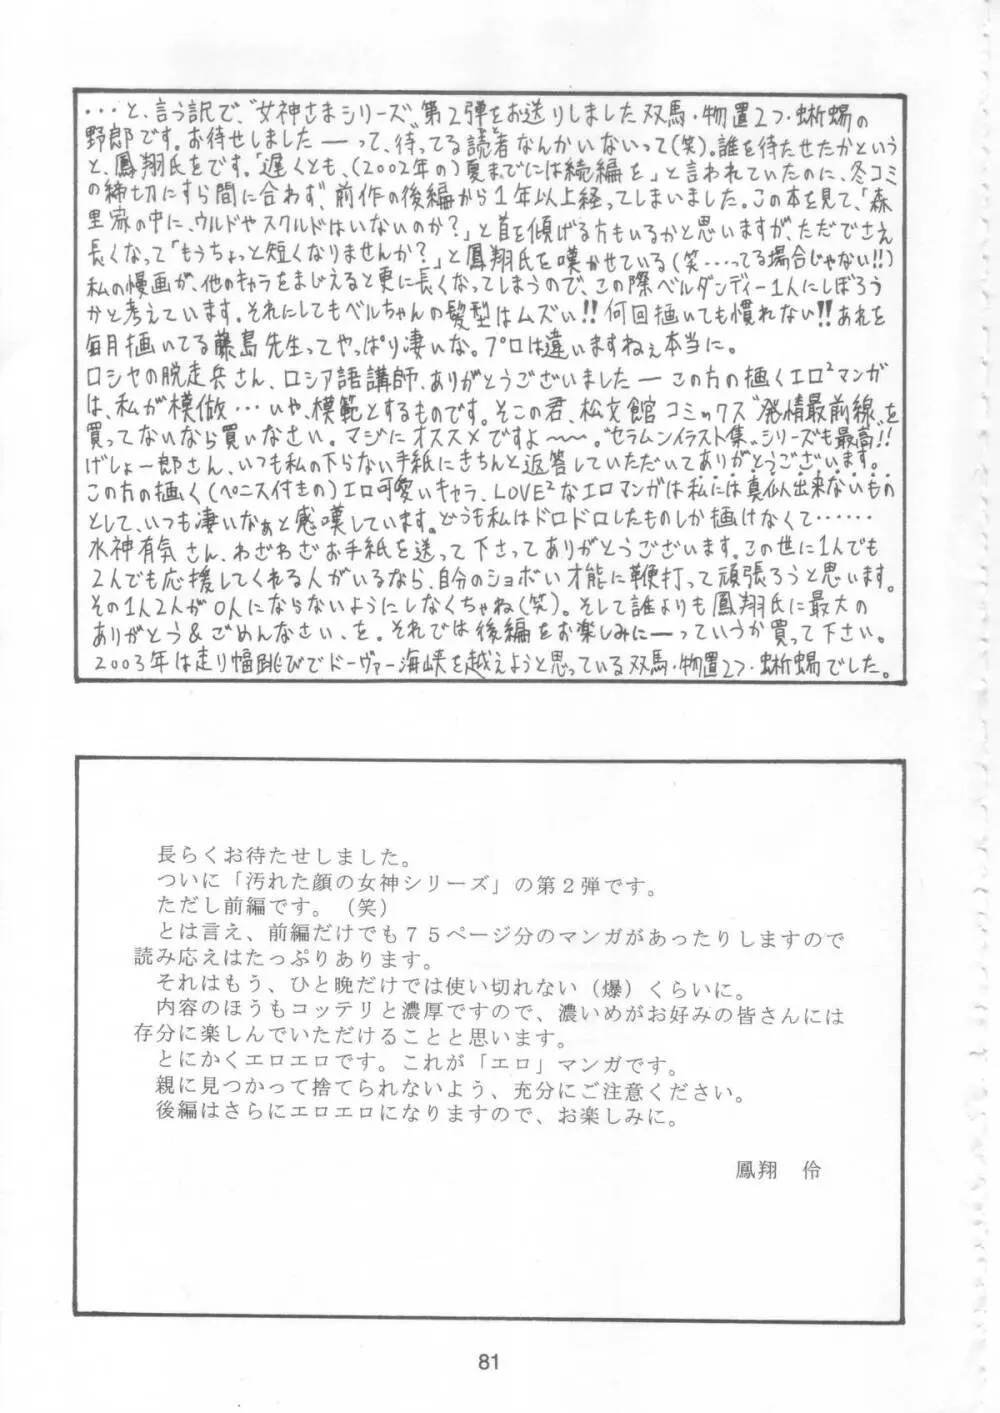 ・・・と、言う訳で、"女神さまシリーズ"第2弾をお送りしました双馬・物置2つ・蜥蜴の
野郎です。お待せしました――って、待ってる読者なんかいないって(笑)。誰を待たせたかという
と、鳳翔氏をです。「遅くとも、(2002年の)夏までには続編を」と言われていたのに、冬コミ
の締切にすら間に合わず、前作の後編から1年以上経ってしまいました。この本を見て、「森
里家の中に、ウルドやスクルドはいないのか？」と首を傾げる方もいるかと思いますが、ただでさえ
長くなって「もうちょっと短くなりませんか？」と鳳翔氏を嘆かせている(笑・・・ってる場合じゃない!!)
私の漫画が、他のキャラをまじえると更に長くなってしまうので、この際ベルダンディー1人にしぼろう
かと考えています。それにしてもベルちゃんの髪型はムズい!!何回描いても慣れない!!あれを
毎月描いてる藤島先生ってやっぱり凄いな。プロは違いますねぇ本当に。
ロシヤの脱走兵さん、ロシア語講師、ありがとうございました―この方の描くエロ²マンガ
は、私が模倣・・・いや、模範とするものです。そこの君、松文館コミックス"発情最前線"を
買ってないなら買いなさい。マジにオススメですよ〜〜。"セラムンイラスト集"シリーズも最高!!
げしょー郎さん、いつも私の下らない手紙にきちんと返答していただいてありがとうございます。
この方の描く(ペニス付きの)エロ可愛いキャラ、LOVE²なエロマンガは私には真似出来ないもの
として、いつも凄いなぁと感嘆しています。どうも私はドロドロしたものしか描けなくて・・・・・・
水神有気さん、わざわざお手紙を送って下さってありがとうございます。この世に1人でも
2人でも応援してくれる人がいるなら、自分のショボい才能に鞭打って頑張ろうと思います。
その1人2人が0人にならないようにしなくちゃね(笑)。そして誰よりも鳳翔氏に最大の
ありがとう&ごめんなさい、を。それでは後編をお楽しみに――っていうか買って下さい。
2003年は走り幅跳びでドーヴァー海峡を越えようと思っている双馬・物置2つ・蜥蜴でした。
長らくお待たせしました。
ついに「汚れた顔の女神シリーズ」の第２弾です。
ただし前編です。（笑）
とは言え、前編だけでも７５ページ分のマンガがあったりしますので
読み応えはたっぷりあります。
それはもう、ひと晩だけでは使い切れない（爆）くらいに。
内容のほうもコッテリと濃厚ですので、濃いめがお好みの皆さんには
存分に楽しんでいただけることと思います。
とにかくエロエロです。これが「エロ」マンガです。
親に見つかって捨てられないよう、充分にご注意ください。
後編はさらにエロエロになりますので、お楽しみに。
鳳翔　伶
81